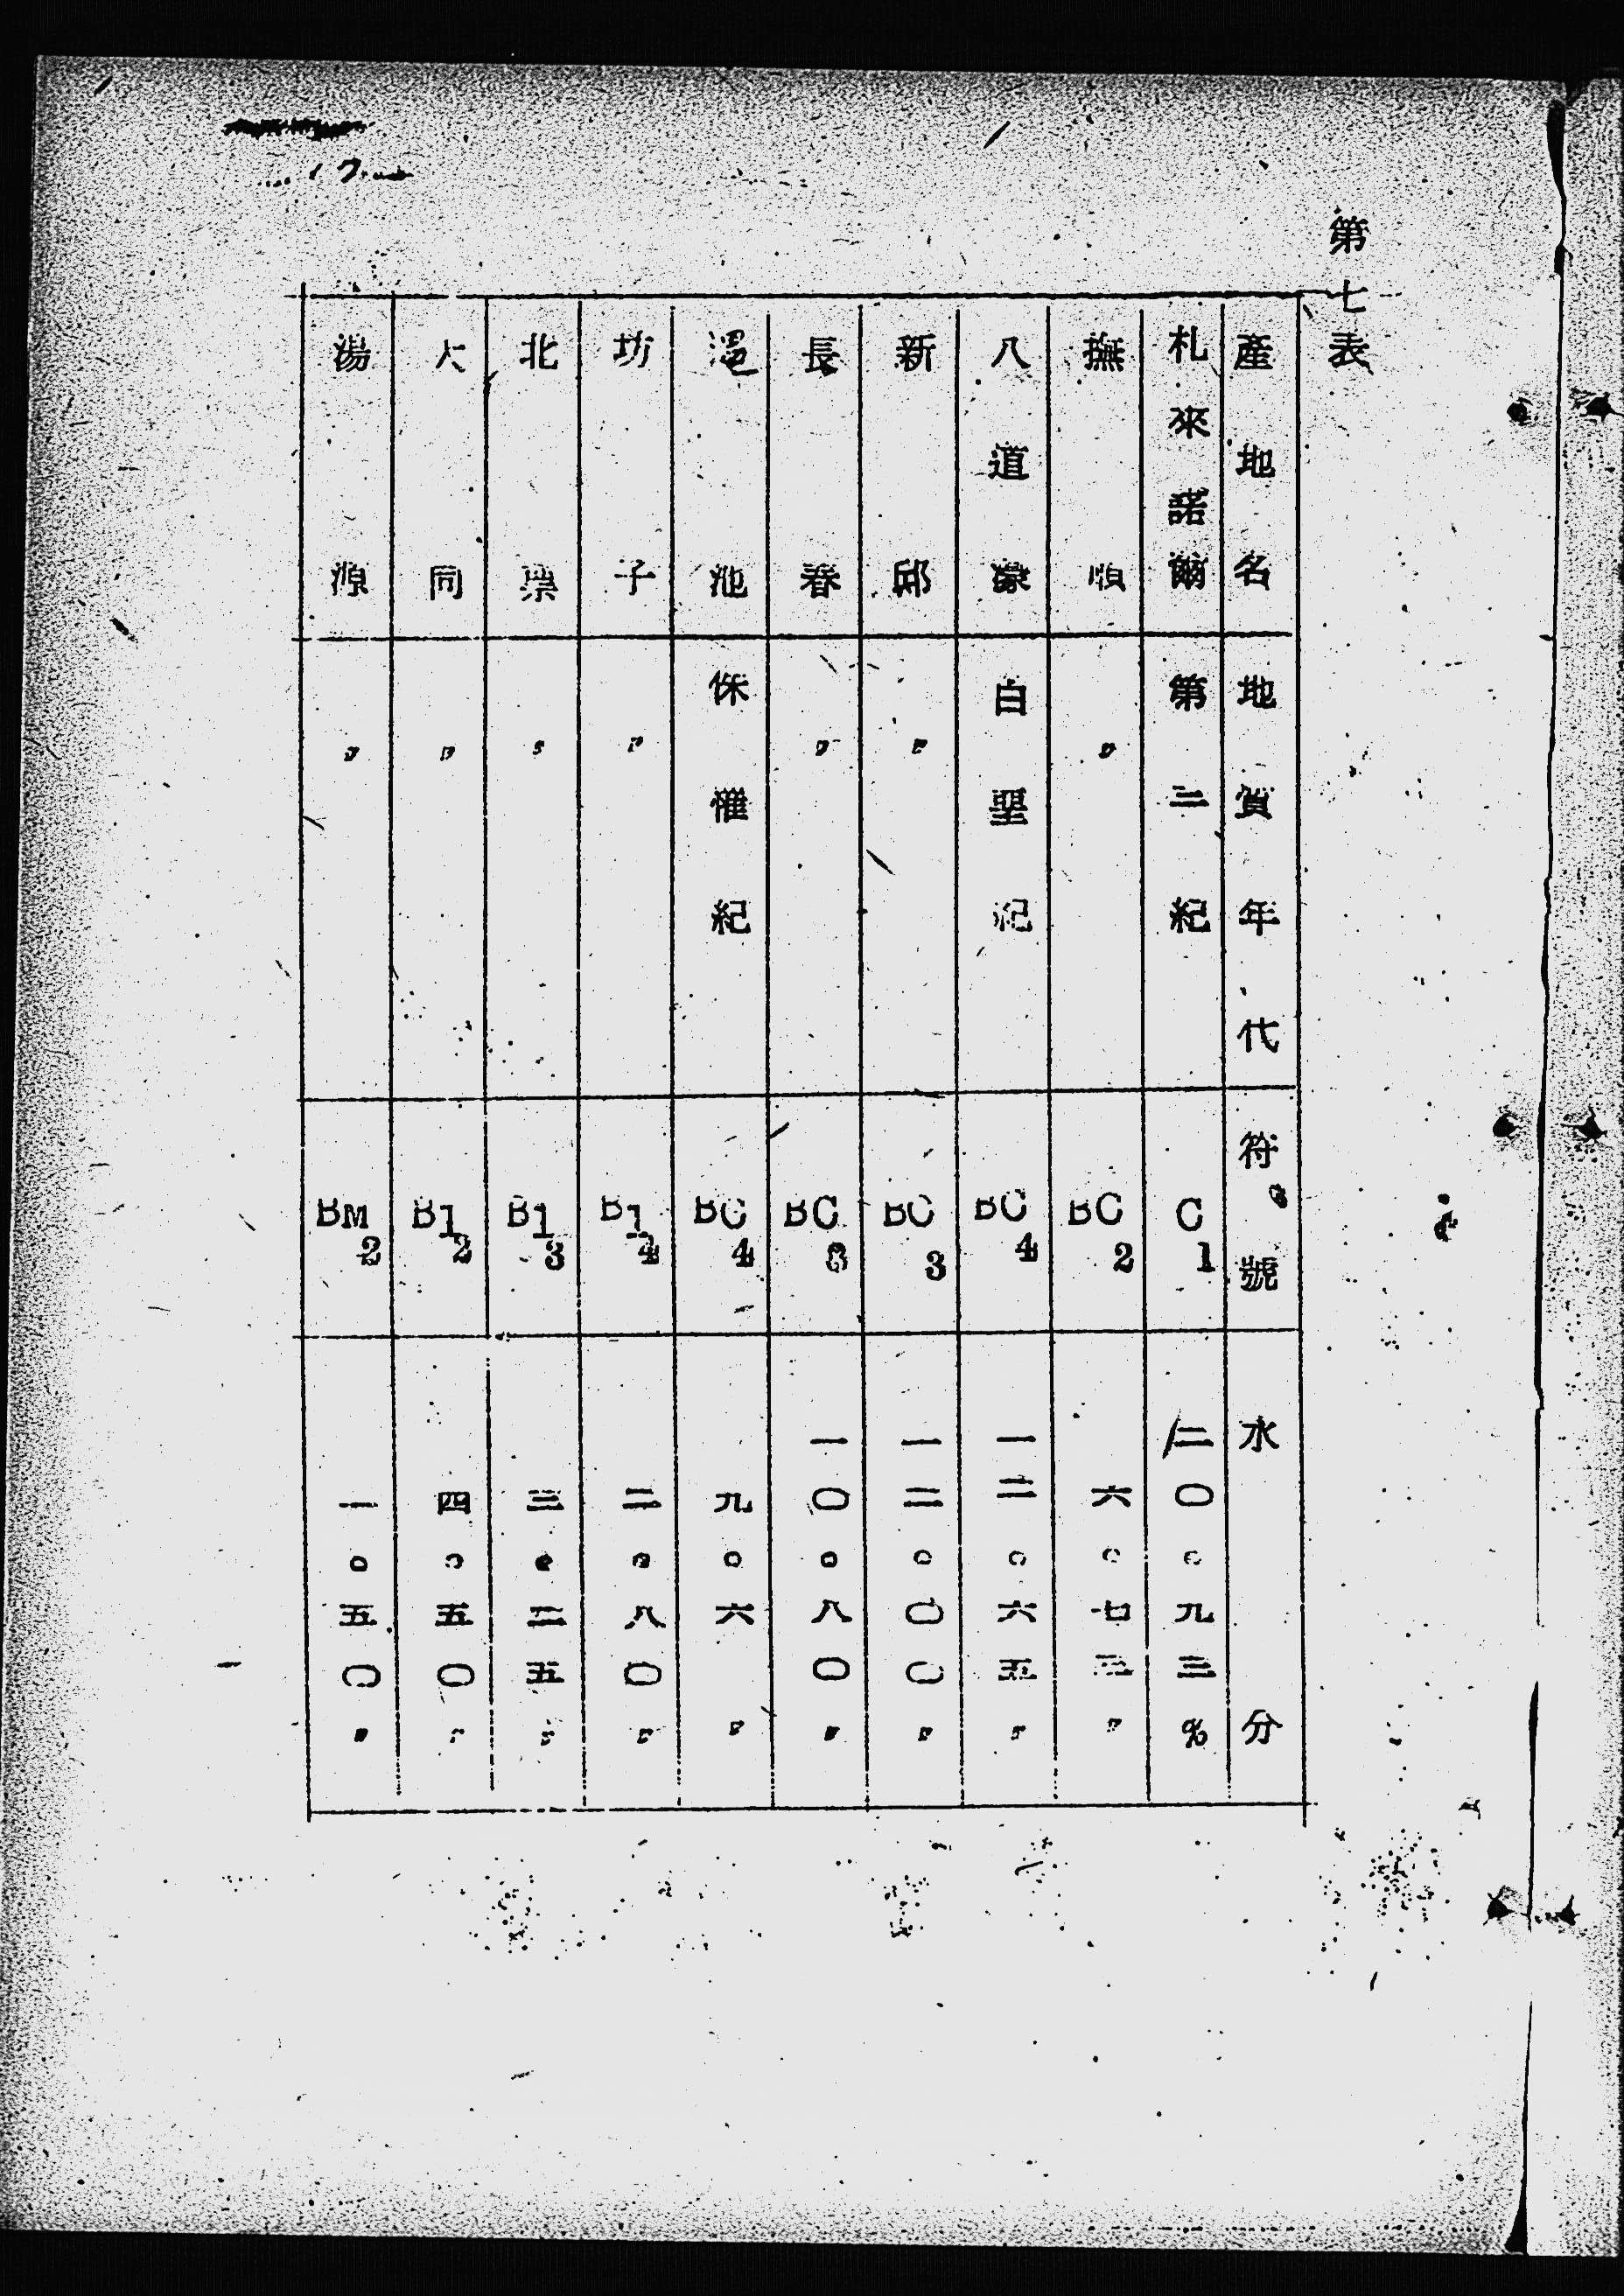 第七表
產地名 地質年代 符號 水分
札來諾爾 第二紀 C1 二〇。九三%
撫順 〃 BC2 六。七三〃
八道濠 白堊紀 BC4 一二。六五〃
新邱 〃 BC3 一二。〇〇〃
長春 〃 BC3 一〇。八〇〃
池 侏惟紀 BC4 九。六〃
坊子 〃 B14 二。八〇〃
北票 〃 B13 三。二五〃
大同 〃 B12 四。五〇〃
湯源 〃 BM2 一。五〇〃